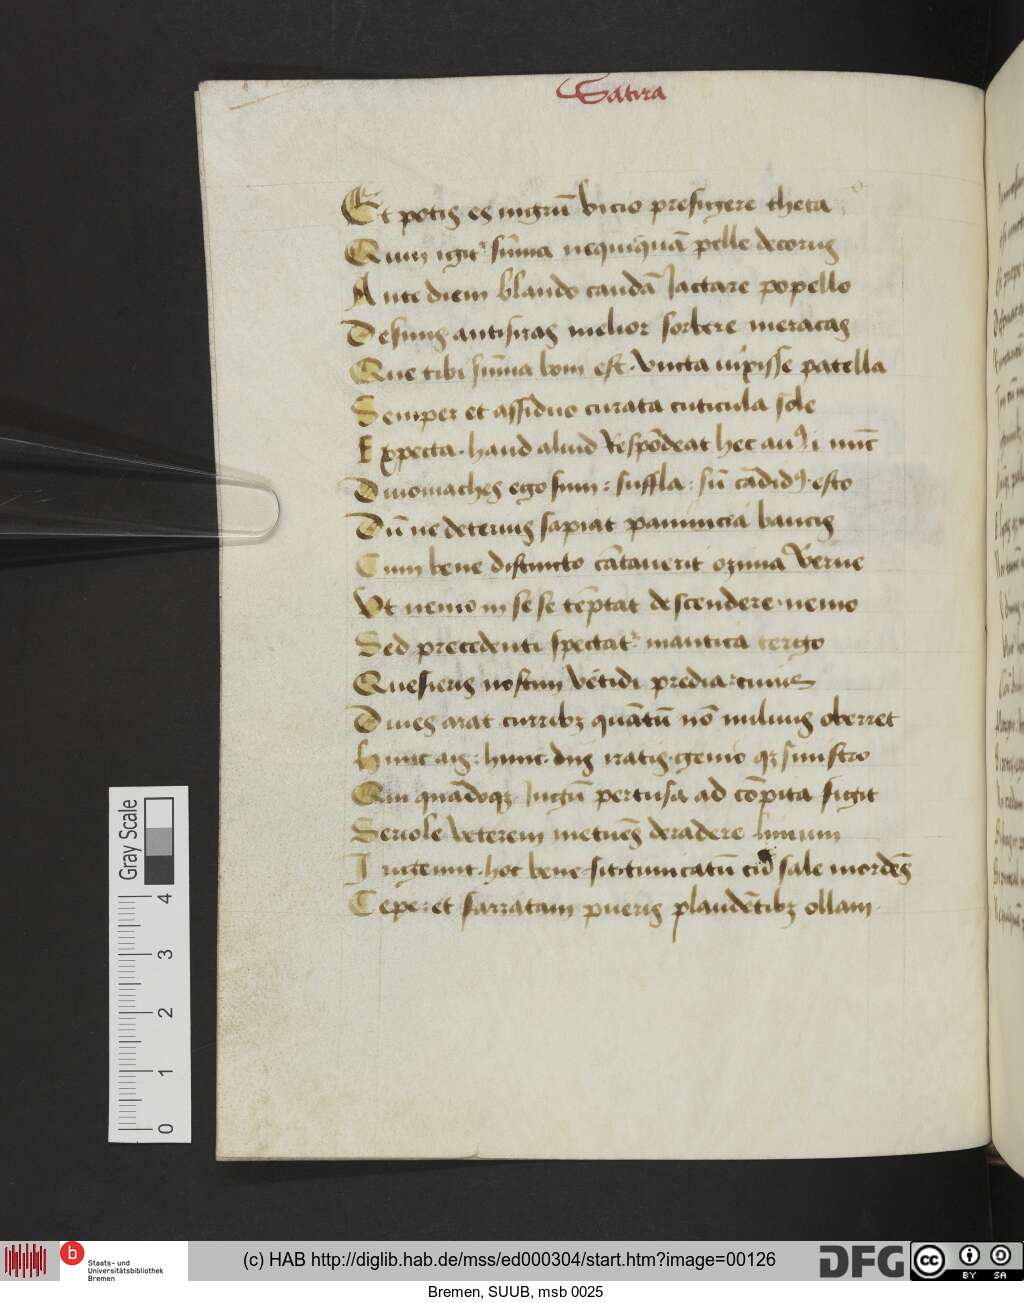 Satira
Et potis es nigrū vicio prefigere theta
Quin igit᷑ sūma nequiquā pelle decorus
Ante diem blando caudā Jactare popello
Desinis anticiras melior sorbere meracas
Que tibi sūma boni est. vncta uixisse patella
Semper et assiduo curata cuticula sole
Expecta. haud aliud respōdeat hec anꝰ. i nūc
Dinomaches ego sum: suffla: sū cādidꝰ. esto
Dū ne deterius sapiat pannucia baucis
Cum bene discincto cātauerit ozima verne
Vt nemo in se se tēptat descendere. nemo
Sed precedenti spectat᷑ mantica tergo
Quesieris nostin vētidi predia: cuius
Diues arat curribꝫ quātū nō miluus oberret
Hunc ais: hunc. diis iratis. genio qꝫ sinistro
Qui quādoqꝫ Iugū pertusa ad cōpita figit
Seriole veterem metuēs deradere limum
Ingemit. hoc bene sit: tunicatū cū sale mordēs
Cepe: et farratam pueris plaudētibꝫ ollam.
Gray Scale
4
3
2
1
0
b
Staats- und
Universitätsbibliothek
Bremen
(c) HAB http://diglib.hab.de/mss/ed000304/start.htm?image=00126
DFG
cc
BY SA
Bremen, SUUB, msb 0025